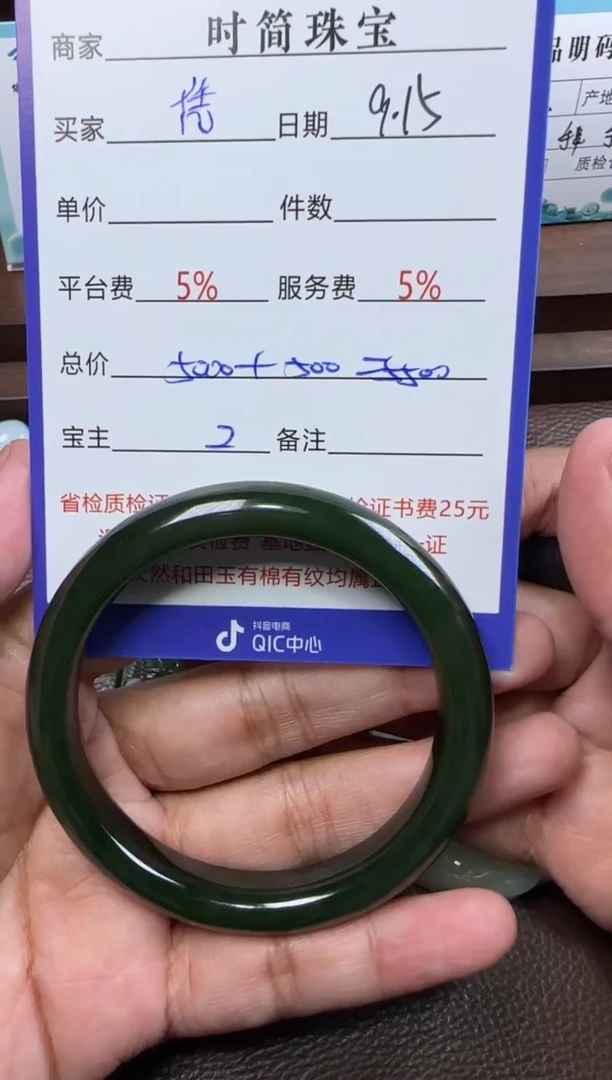 商家 时简珠宝
品明码
买家 凭 日期 9.15
产地
单价 件数
质检
平台费 5% 服务费 5%
总价 5000+500 =5500
宝主 2 备注
省检质检证 检证书费25元
检费 基地 证
天然和田玉有棉有纹均属
抖音电商
QIC中心